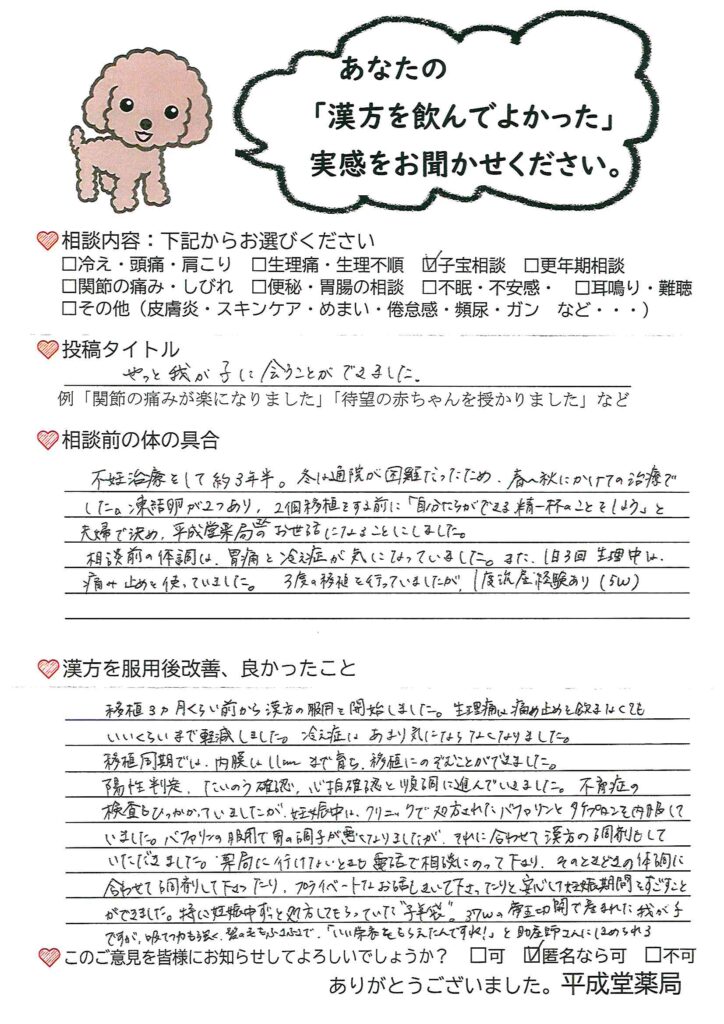 あなたの
「漢方を飲んでよかった」
実感をお聞かせください。
相談内容：下記からお選びください
□冷え・頭痛・肩こり　□生理痛・生理不順　☑子宝相談　□更年期相談
□関節の痛み・しびれ　□便秘・胃腸の相談　□不眠・不安感・　□耳鳴り・難聴
□その他（皮膚炎・スキンケア・めまい・倦怠感・頻尿・ガン　など・・・）
投稿タイトル
やっと我が子に会うことができました。
例「関節の痛みが楽になりました」「待望の赤ちゃんを授かりました」など
相談前の体の具合
不妊治療として約3年半。冬は通院が困難だったため、春〜秋にかけての治療で
した。凍結卵が2つあり、2個移植をする前に「自分たちができる精一杯のことをしよう」と
夫婦で決め、平成堂薬局さんのお世話になることにしました。
相談前の体調は、胃痛と冷え症が気になっていました。また、1日3回 生理中は、
痛み止めを使っていました。　3度の移植を行っていましたが、1度流産経験あり（5W）
漢方を服用後改善、良かったこと
移植3ヵ月くらい前から漢方の服用を開始しました。生理痛は痛め止めを飲まなくても
いいくらいまで軽減しました。冷え症は あまり気にならなくなりました。
移植周期では、内膜は11mmまで育ち、移植にのぞむことができました。
陽性判定、たいのう確認、心拍確認と順調に進んでいきました。不育症の
検査もひっかかっていましたが、妊娠中は、クリニックで処方されたバファリンと 内服して
いました。バファリンの服用で胃の調子が悪くなりましたが、それに合わせて漢方の調剤もして
いただきました。薬局に行けないときも電話で相談にのって下さり、そのときどきの体調に
合わせて調剤して下さったり、プライベートなお話しまでして下さったりと安心して妊娠期間をすごすこと
ができました。特に妊娠中ずっと処方してもらっていた"子羊袋"。37Wの帝王切開で産まれた我が子
ですが、吸てつ力も強く、髪の毛もふさふさで、「いい栄養をもらえたんですね！」と助産師さんにほめられる
このご意見を皆様にお知らせしてよろしいでしょうか？　□可　☑匿名なら可　□不可
ありがとうございました。平成堂薬局